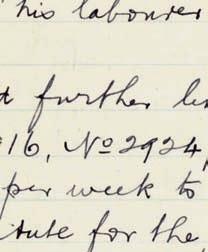 his labourer
further
16, No 2924,
per week to
for the